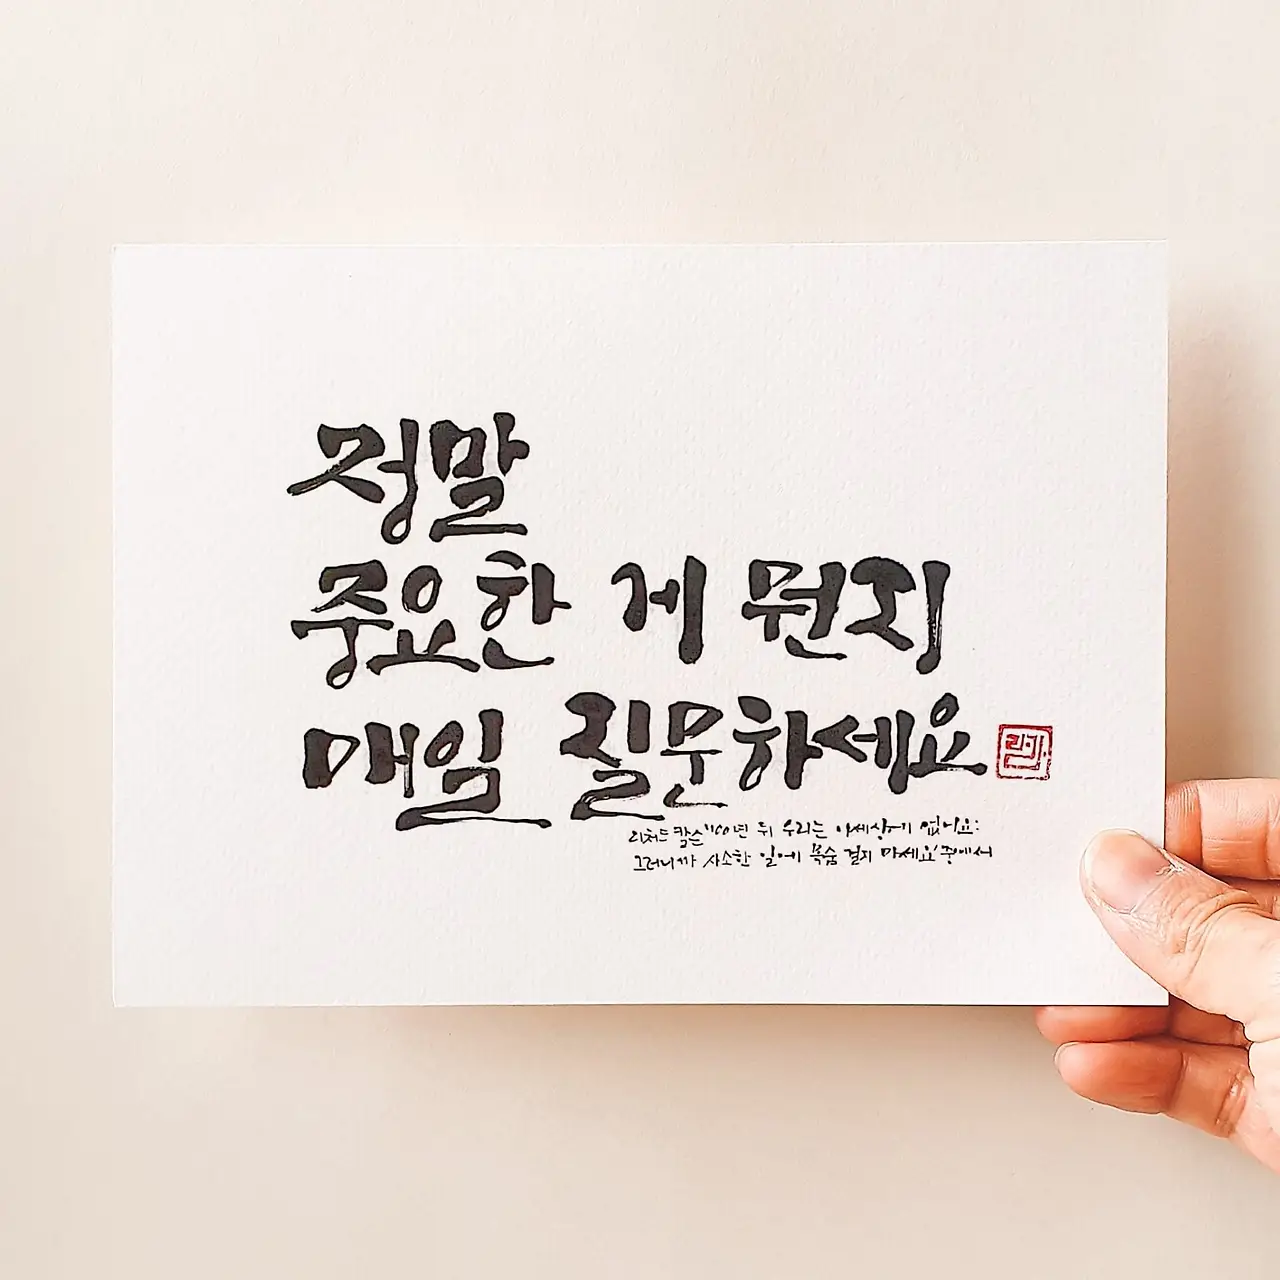 정말
중요한 게 뭔지
매일 질문하세요
리처드 칼슨 "100년 뒤 우리는 이세상에 없어요:
그러니까 사소한 일에 목숨 걸지 마세요" 중에서